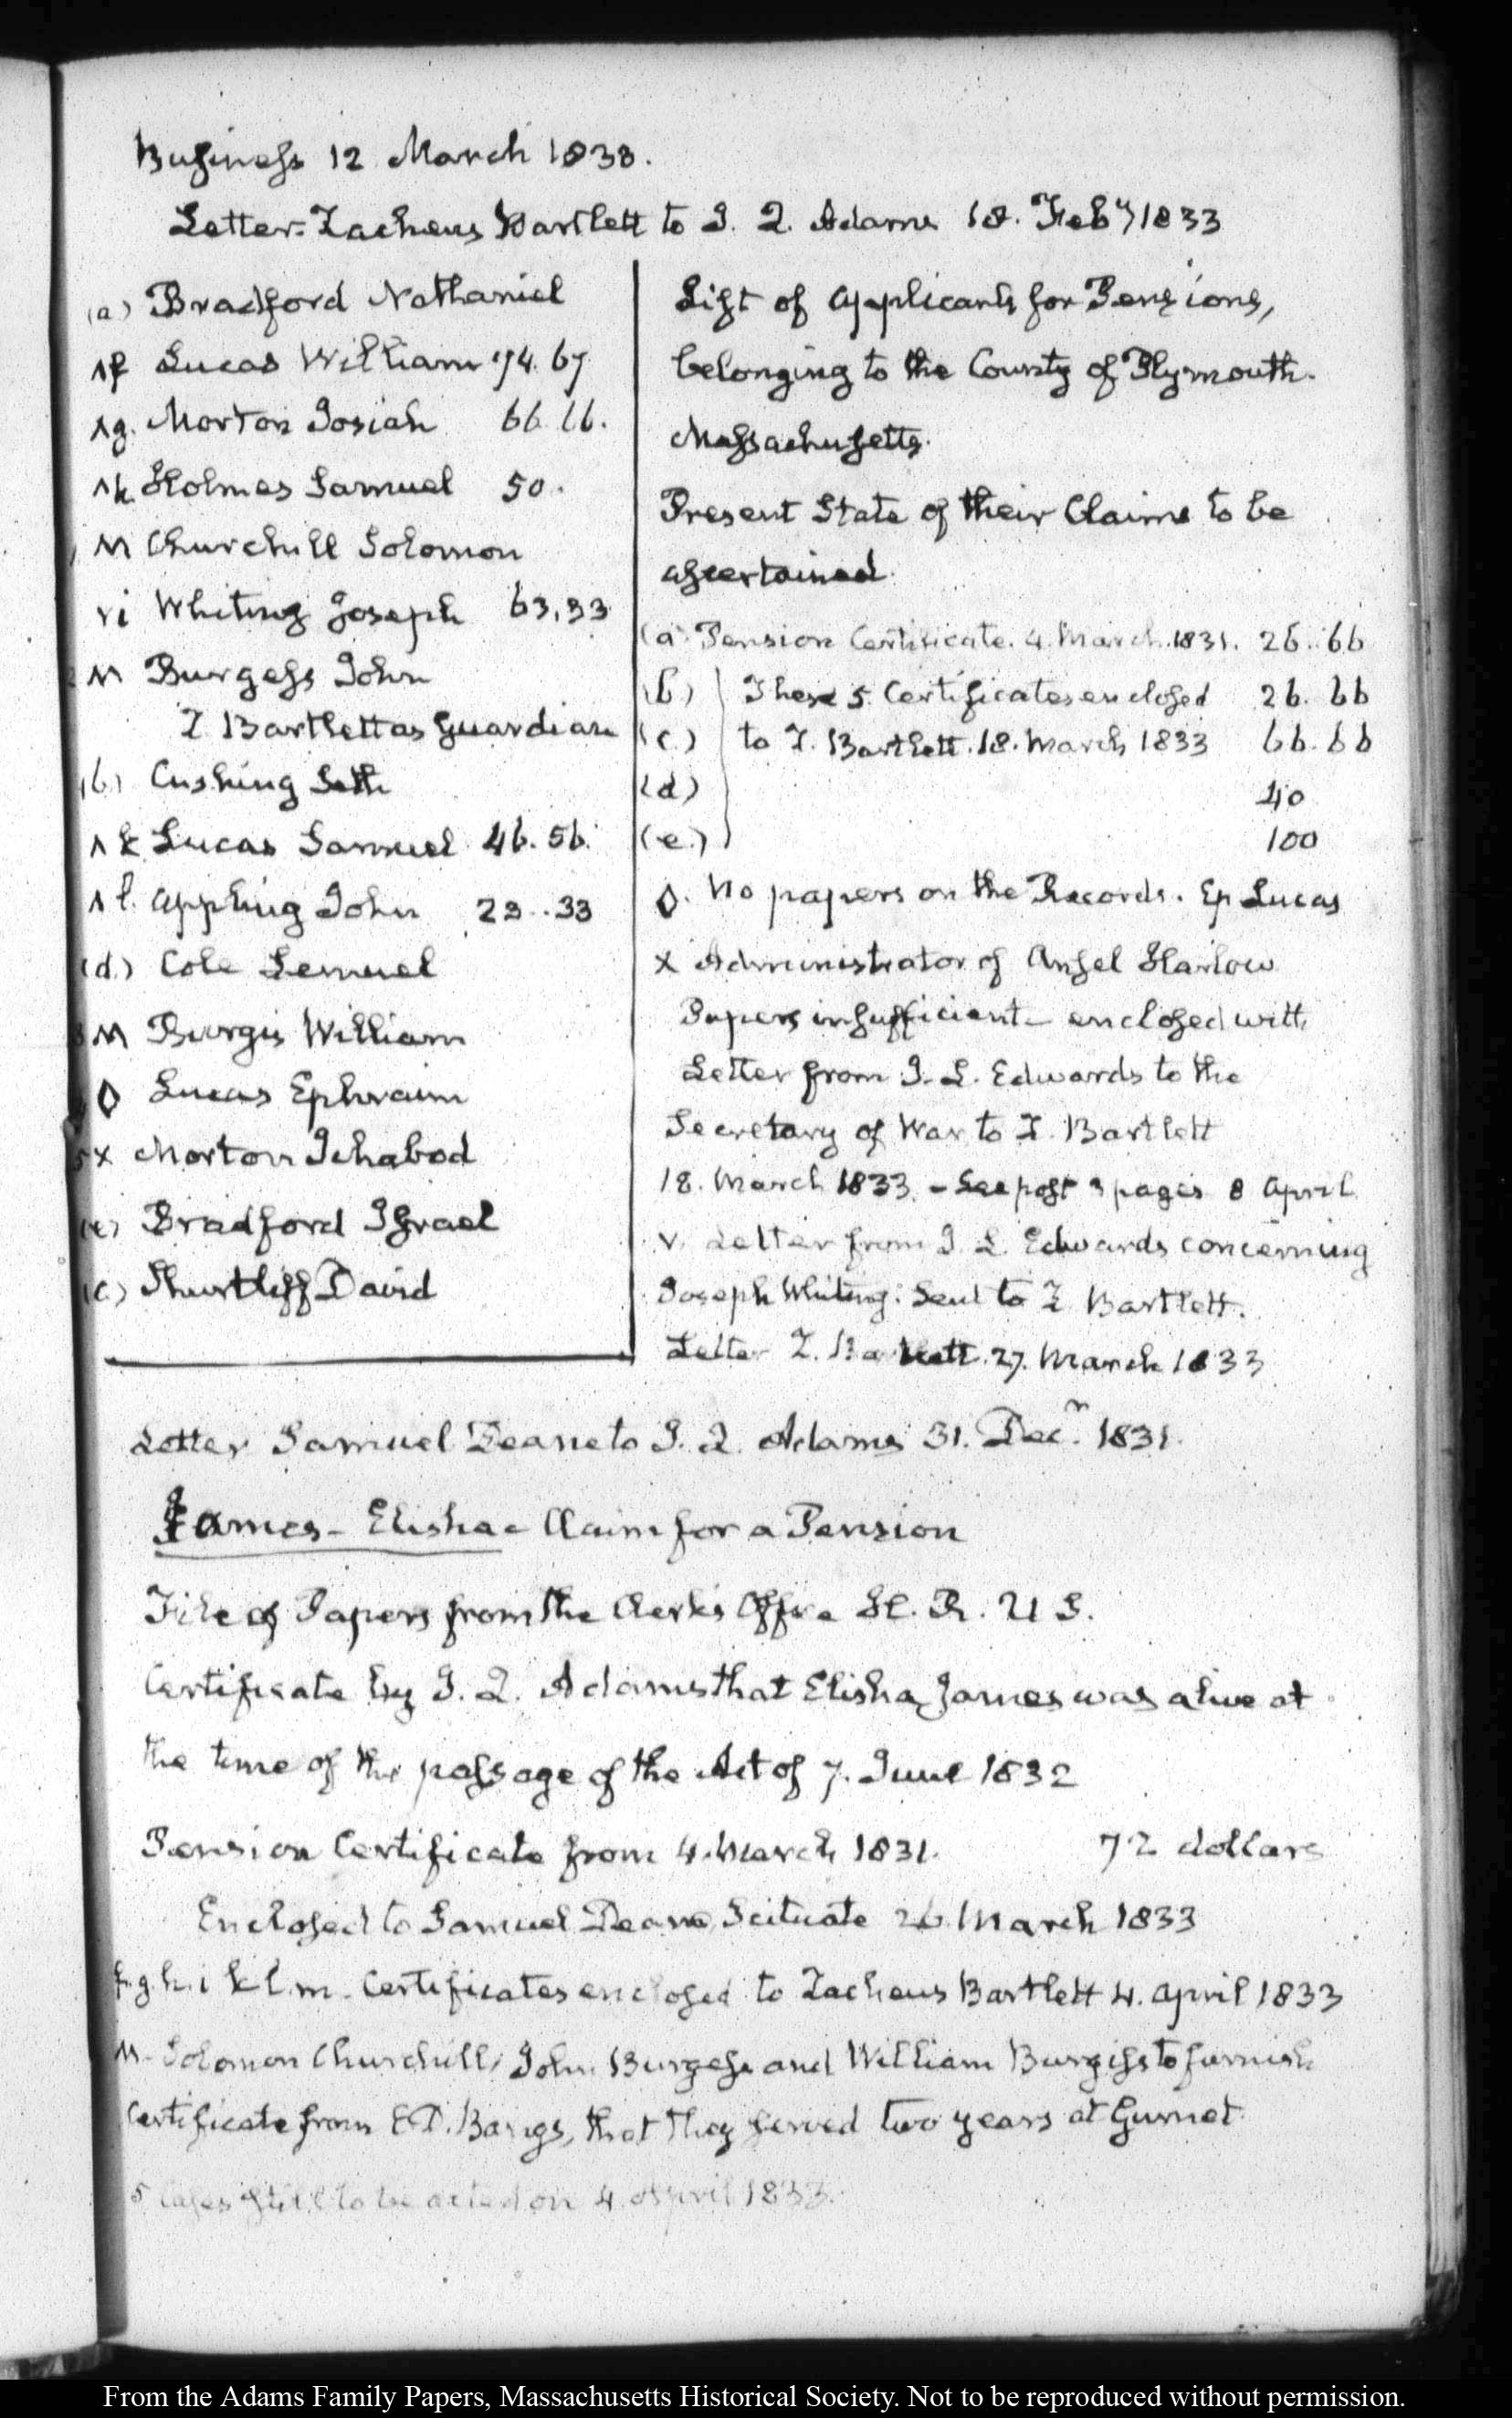 Business 12 March 1833.
Letter. Zacheus Bartlett to J. Q. Adams 18. Feby 1833
(a) Bradford Nathaniel
∧f Lucas William 74. 67
∧g. Morton Josiah 66 66.
∧h Holmes Samuel 50.
M Churchill Solomon
vi Whiting Joseph 63,33
M Burgess John
Z Bartlett as Guardian
(b) Cushing Seth
∧k Lucas Samuel 46. 56.
∧l. Appling John 23..33
(d.) Cole Lemuel
3 M Burgis William
◊ Lucas Ephraim
5 x Morton Ichabod
(e) Bradford Israel
(c) Shurtliff David
List of Applicants for Pensions,
belonging to the County of Plymouth.
Massachusetts.
Present State of their Claims to be
ascertained.
(a) Pension Certificate. 4. March. 1831. 26..66
(b) These 5. Certificates enclosed 26. 66
(c.) to Z. Bartlett. 18. March 1833 66. 66
(d) 40
(e.) 100
◊. No papers on the Records. Ep Lucas
x Administrator of Ansel Harlow
Papers insufficient - enclosed with
Letter from J. L. Edwards to the
Secretary of War to Z. Bartlett
18. March 1833. - See post 3 pages 8 April
v. Letter from J. L. Edwards concerning
Joseph Whiting. Sent to Z Bartlett.
Letter Z. Bartlett. 27. March 1833
Letter Samuel Deane to J. Q. Adams 31. Decr. 1831.
James - Elisha - Claim for a Pension
File of Papers from the Clerk's Office H. R. U S.
Certificate by J. Q. Adams that Elisha James was alive at
the time of the passage of the Act of 7. June 1832
Pension Certificate from 4. March 1831. 72 dollars
Enclosed to Samuel Deane, Scituate 26 March 1833
f. g. h. i k l. m. Certificates enclosed to Zacheus Bartlett 4. April 1833
M - Solomon Churchill, John Burgess and William Burgiss to furnish
Certificate from E D. Bangs, that they served two years at Gurnet.
5 Cases still to be acted on 4. April 1833.
From the Adams Family Papers, Massachusetts Historical Society. Not to be reproduced without permission.